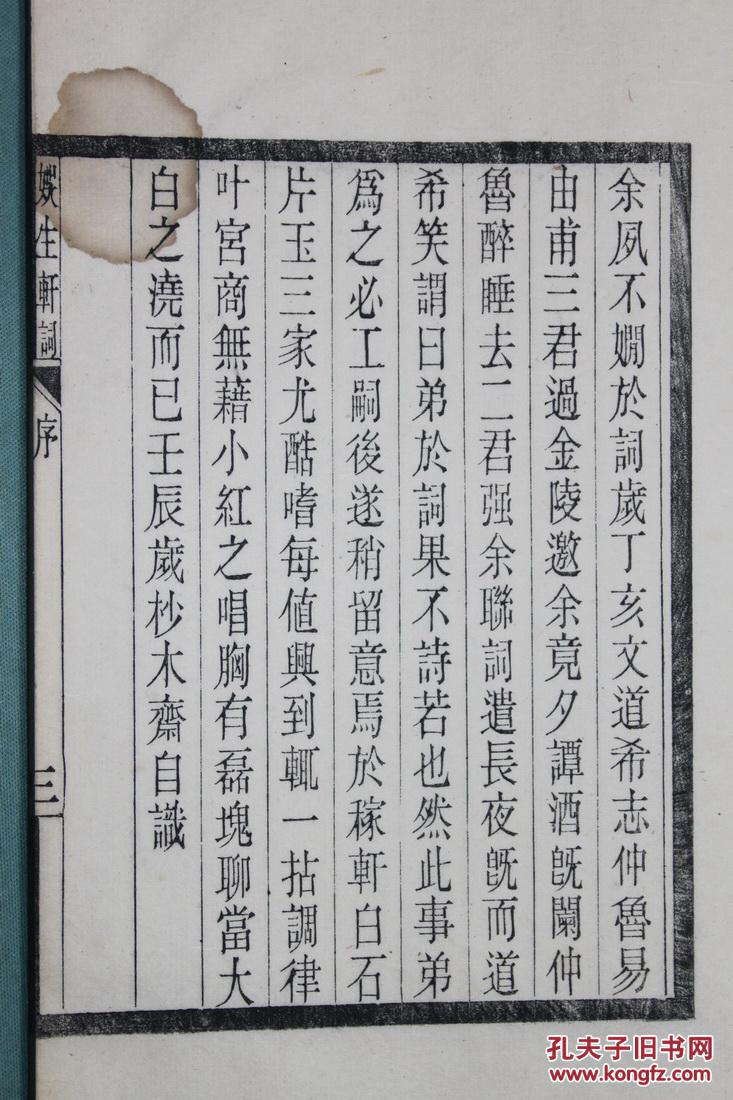 余夙不嫺於詞歲丁亥文道希志仲魯易
由甫三君過金陵邀余竟夕譚酒旣闌仲
魯醉睡去二君强余聯詞遣長夜旣而道
希笑謂曰弟於詞果不詩若也然此事弟
爲之必工嗣後遂稍留意焉於稼軒白石
片玉三家尤酷嗜每値興到輒一拈調律
叶宮商無藉小紅之唱胸有磊塊聊當大
白之澆而已壬辰歲杪木齋自識
娛生軒詞 序 三
孔夫子旧书网
www.kongfz.com